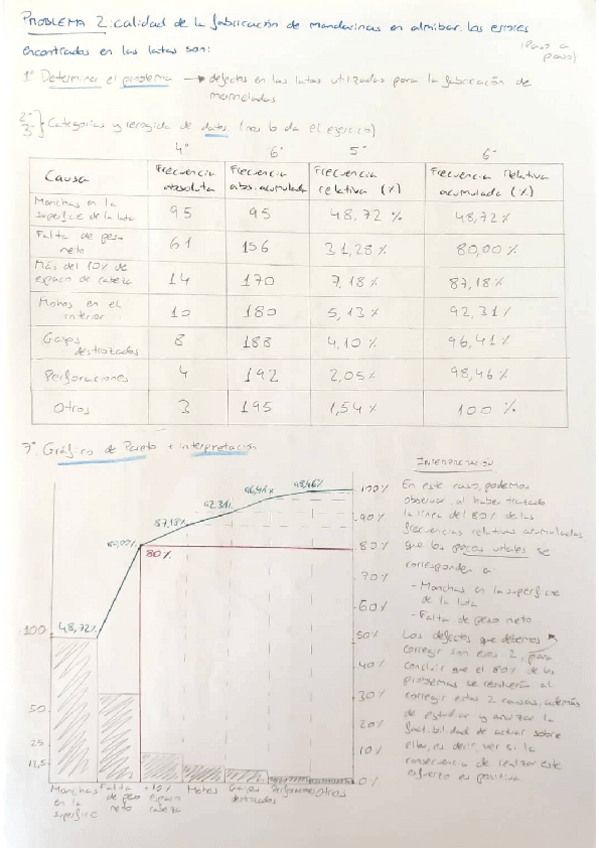 PROBLEMA 2: calidad de la fabricación de mandarinas en almíbar. los errores
encontrados en las latas son:
(Paso a
paso)
1º Determinar el problema → defectos en las latas utilizadas para la fabricación de
mermeladas
2º
3º } Categorías y recogida de datos. (nos lo da el ejercicio)
4º 6º 5º 6º
Causa Frecuencia absoluta Frecuencia abs. acumulada Frecuencia relativa (%) Frecuencia relativa acumulada (%)
Manchas en la superficie de la lata 95 95 48,72 % 48,72%
Falta de peso neto 61 156 31,28% 80,00%
Más del 10% de espacio de cabeza 14 170 7,18% 87,18%
Mohos en el interior 10 180 5,13% 92,31%
Gajos destrozados 8 188 4,10% 96,41%
Perforaciones 4 192 2,05% 98,46%
Otros 3 195 1,54% 100 %
7º. Gráfico de Pareto + interpretación
48,72% 80,00% 87,18% 92,31% 96,41% 98,46%
80%
100
50
25
12,5
100%
90%
80%
70%
60%
50%
40%
30%
20%
10%
0%
Manchas en la superficie
Falta de peso neto
+10% espacio cabeza
Mohos
Gajos destrozados
Perforaciones
Otros
INTERPRETACIÓN
En este caso, podemos
observar, al haber trazado
la línea del 80% de las
frecuencias relativas acumuladas
que los pocos vitales se
corresponden a:
- Manchas en la superficie
de la lata
- Falta de peso neto
Los defectos que debemos
corregir son esos 2, para
concluir que el 80% de los
problemas se resolvería al
corregir estas 2 causas, además
de estudiar y analizar la
factibilidad de actuar sobre
ellas, es decir, ver si la
consecuencia de realizar este
esfuerzo es positiva.